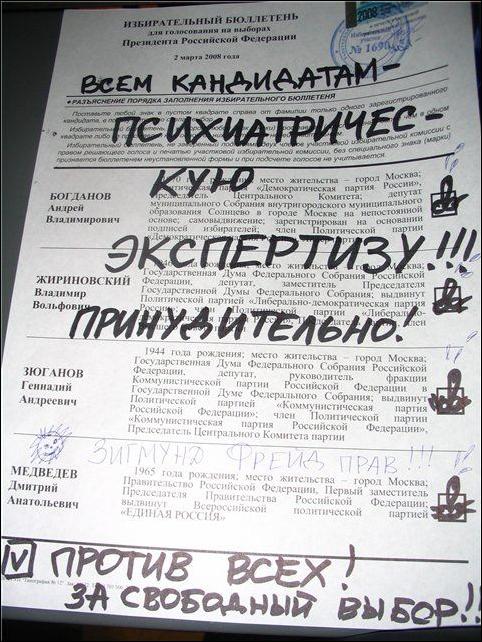 ИЗБИРАТЕЛЬНЫЙ БЮЛЛЕТЕНЬ
для голосования на выборах
Президента Российской Федерации
2 марта 2008 года
2008
№ 1690
ВСЕМ КАНДИДАТАМ-
РАЗЪЯСНЕНИЕ ПОРЯДКА ЗАПОЛНЕНИЯ ИЗБИРАТЕЛЬНОГО БЮЛЛЕТЕНЯ
Поставьте любой знак в пустом квадрате справа от фамилии только одного зарегистрированного
ПСИХИАТРИЧЕС-
правом решающего голоса и печатью участковой избирательной комиссии, без специального знака (марки)
признается бюллетенем неустановленной формы и при подсчете голосов не учитывается.
КУЮ
БОГДАНОВ
Андрей
Владимирович
место жительства – город Москва;
«Демократическая партия России»,
Председатель Центрального Комитета; депутат
муниципального Собрания внутригородского муниципального
образования Солнцево в городе Москве на непостоянной
основе; самовыдвижение; зарегистрирован на основании
подписей избирателей; член Политической партии
ЭКСПЕРТИЗУ!!!
ЖИРИНОВСКИЙ
Владимир
Вольфович
место жительства – город Москва;
Государственная Дума Федерального Собрания Российской
Федерации, депутат, заместитель Председателя
Государственной Думы Федерального Собрания; выдвинут
Политической партией «Либерально-демократическая партия
ПРИНУДИТЕЛЬНО!
ЗЮГАНОВ
Геннадий
Андреевич
1944 года рождения; место жительства – город Москва;
Государственная Дума Федерального Собрания Российской
Федерации, депутат, руководитель фракции
Коммунистической партии Российской Федерации в
Государственной Думе Федерального Собрания; выдвинут
Политической партией «Коммунистическая партия
Российской Федерации»; член Политической партии
«Коммунистическая партия Российской Федерации»,
Председатель Центрального Комитета партии
ЗИГМУНД ФРЕЙД ПРАВ!!!
МЕДВЕДЕВ
Дмитрий
Анатольевич
1965 года рождения; место жительства – город Москва;
Правительство Российской Федерации, Первый заместитель
Председателя Правительства Российской Федерации;
выдвинут Всероссийской политической партией
«ЕДИНАЯ РОССИЯ»
V ПРОТИВ ВСЕХ!
ЗА СВОБОДНЫЙ ВЫБОР!!